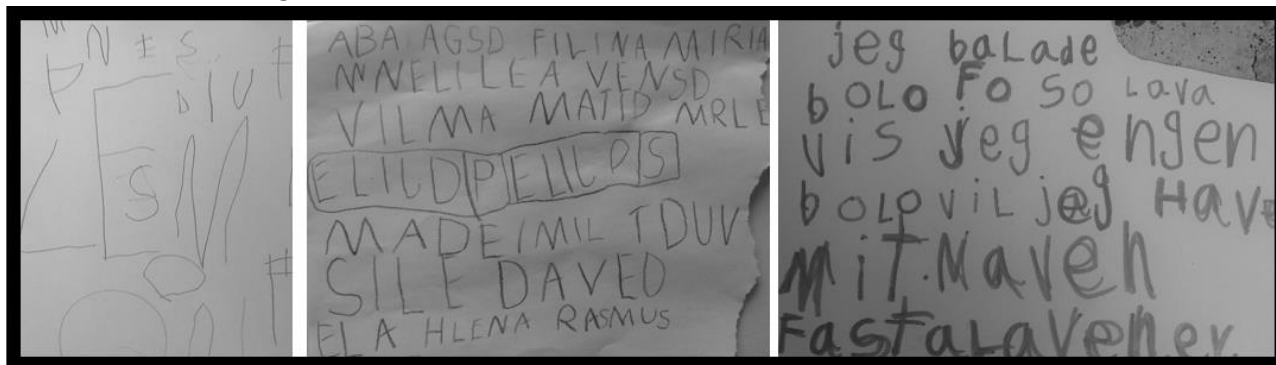 N I S
P
D I U
S
ABA AGSD FILINA MIRIA
NELILEA VENSD
VILMA MATID MRLE
ELILDPELILDS
MADEIMIL TDUV
SILE DAVED
ELA HLENA RASMUS
jeg baLade
bOLO FO SO Lava
vis jeg engen
bOLO viL jeg Have
Mit.Maven
FastaLavener